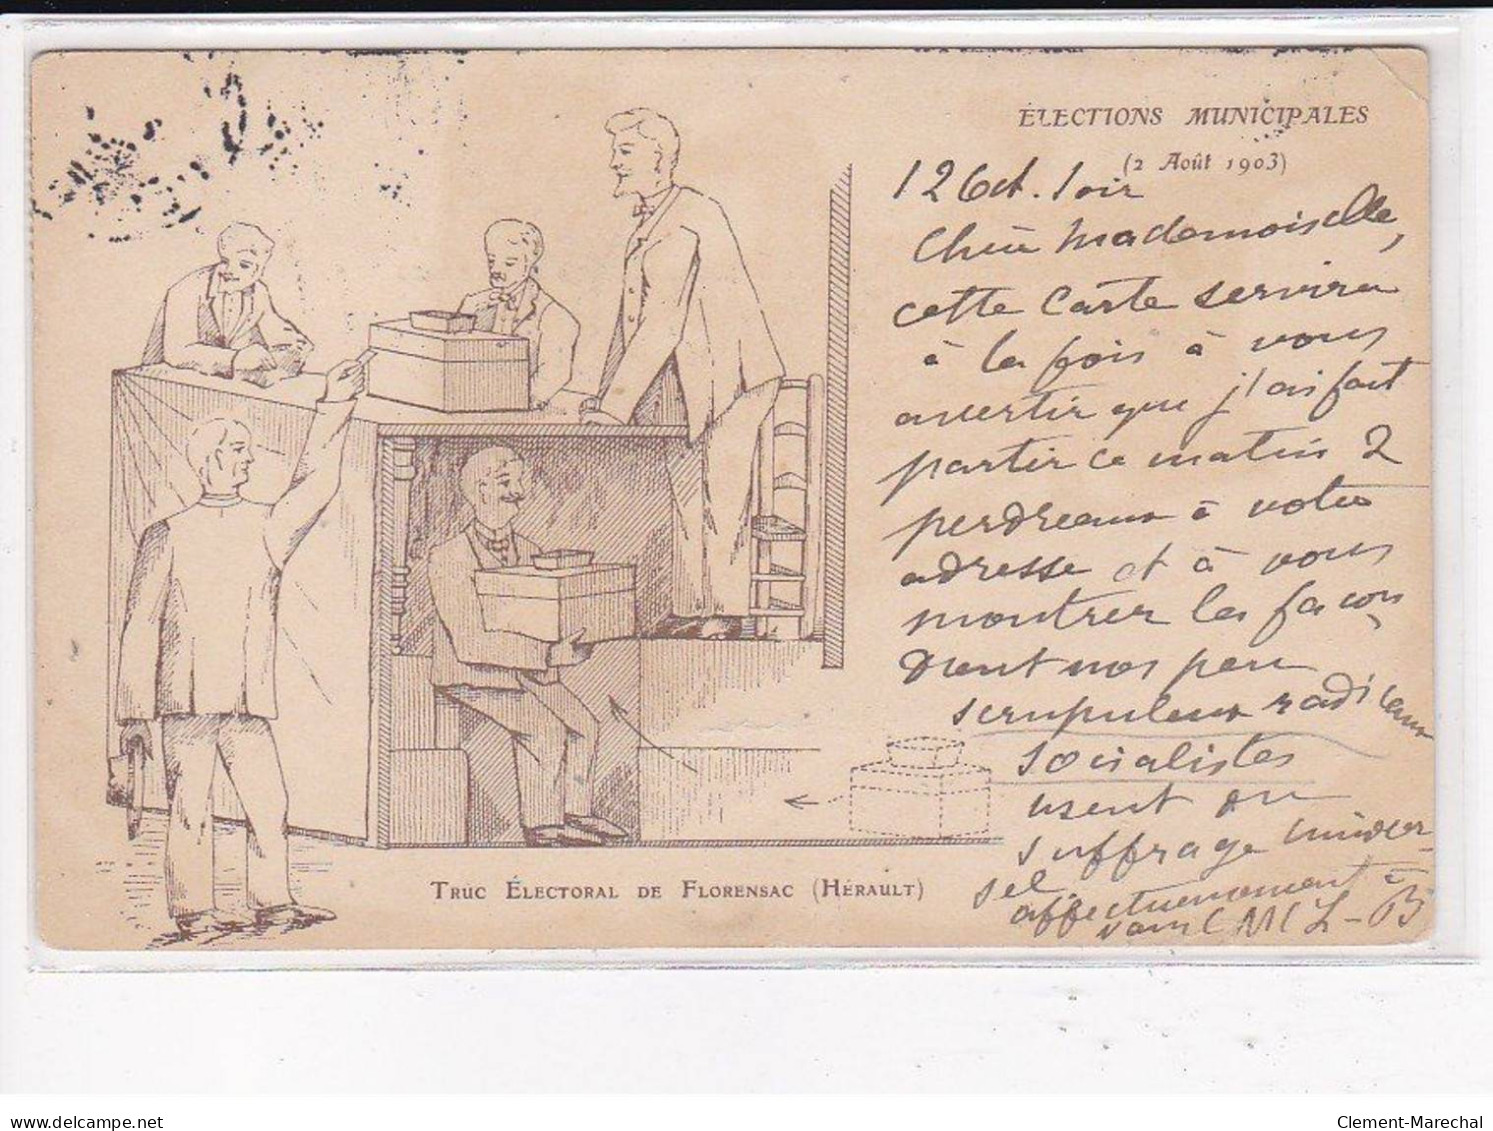 ÉLECTIONS MUNICIPALES
(2 Août 1903)
12 Oct. soir
Chère Mademoiselle,
cette carte servira
à la fois à vous
avertir que j'ai fait
partir ce matin 2
perdreaux à votre
adresse et à vous
montrer la façon
dont nos peu
scrupuleux radicaux
socialistes
usent du
suffrage univer-
sel
affectueusement à
vous
TRUC ÉLECTORAL DE FLORENSAC (HÉRAULT)
delcampe.net
Clement-Marechal